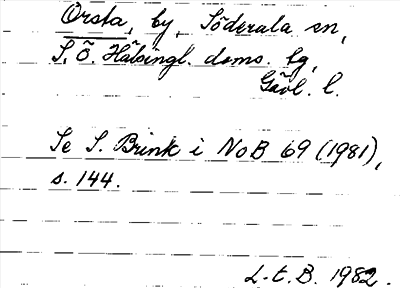 Orsta, by, Söderala sn,
S. Ö. Hälsingl. doms. tg,
Gävl. l.
Se S. Brink i NoB 69 (1981),
s. 144.
L.t.B. 1982.